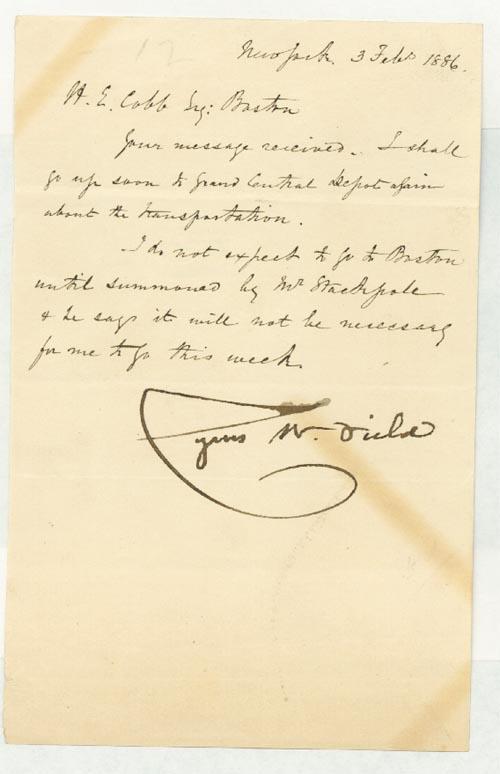 New York. 3 Feb. 1886.
H. E. Cobb Esq: Boston
Your message received. I shall
go up soon to Grand Central Depot again
about the transportation.
I do not expect to go to Boston
until summoned by Mr Stackpole
& he says it will not be necessary
for me to go this week.
Cyrus W. Field